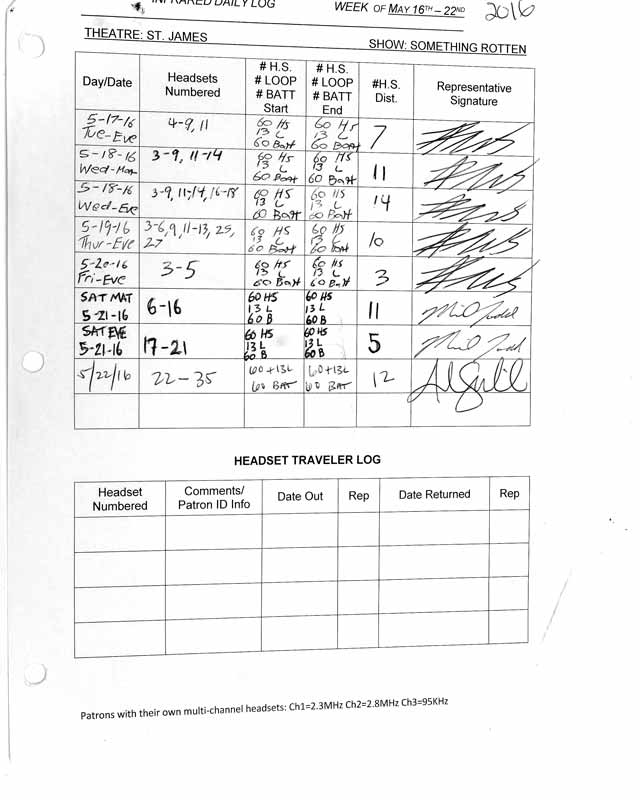 INFRARED DAILY LOG WEEK OF MAY 16TH – 22ND 2016
THEATRE: ST. JAMES SHOW: SOMETHING ROTTEN
Day/Date Headsets Numbered # H.S. # LOOP # BATT Start # H.S. # LOOP # BATT End #H.S. Dist. Representative Signature
5-17-16 Tue-Eve 4-9, 11 60 HS 13 L 60 Batt 60 HS 13 L 60 Batt 7
5-18-16 Wed-Mat 3-9, 11-14 60 HS 13 L 60 Batt 60 HS 13 L 60 Batt 11
5-18-16 Wed-Eve 3-9, 11-14, 16-18 60 HS 13 L 60 Batt 60 HS 13 L 60 Batt 14
5-19-16 Thur-Eve 3-6, 9, 11-13, 25, 27 60 HS 13 L 60 Batt 60 HS 13 L 60 Bat 10
5-20-16 Fri-Eve 3-5 60 HS 13 L 60 Batt 60 HS 13 L 60 Batt 3
SAT MAT 5-21-16 6-16 60 HS 13 L 60 B 60 HS 13 L 60 B 11
SAT EVE 5-21-16 17-21 60 HS 13 L 60 B 60 HS 13 L 60 B 5
5/22/16 22-35 60+13L 60 BAT 60+13L 60 BAT 12
HEADSET TRAVELER LOG
Headset Numbered Comments/ Patron ID Info Date Out Rep Date Returned Rep
Patrons with their own multi-channel headsets: Ch1=2.3MHz Ch2=2.8MHz Ch3=95KHz